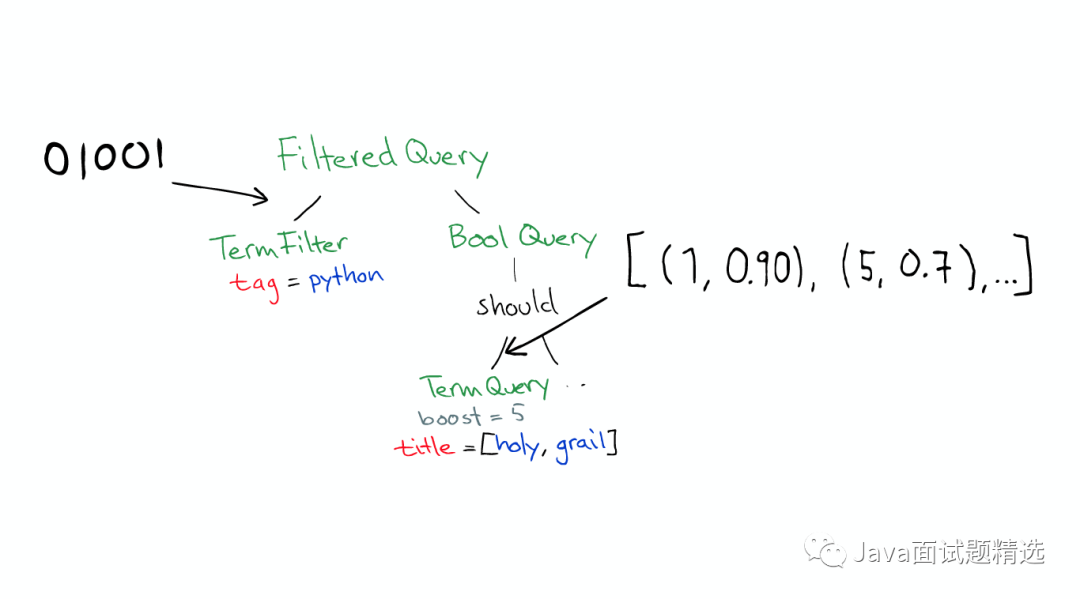 01001
Filtered Query
TermFilter
tag = python
Bool Query
[(1, 0.90), (5, 0.7), ...]
should
TermQuery ..
boost = 5
title = [holy, grail]
Java面试题精选